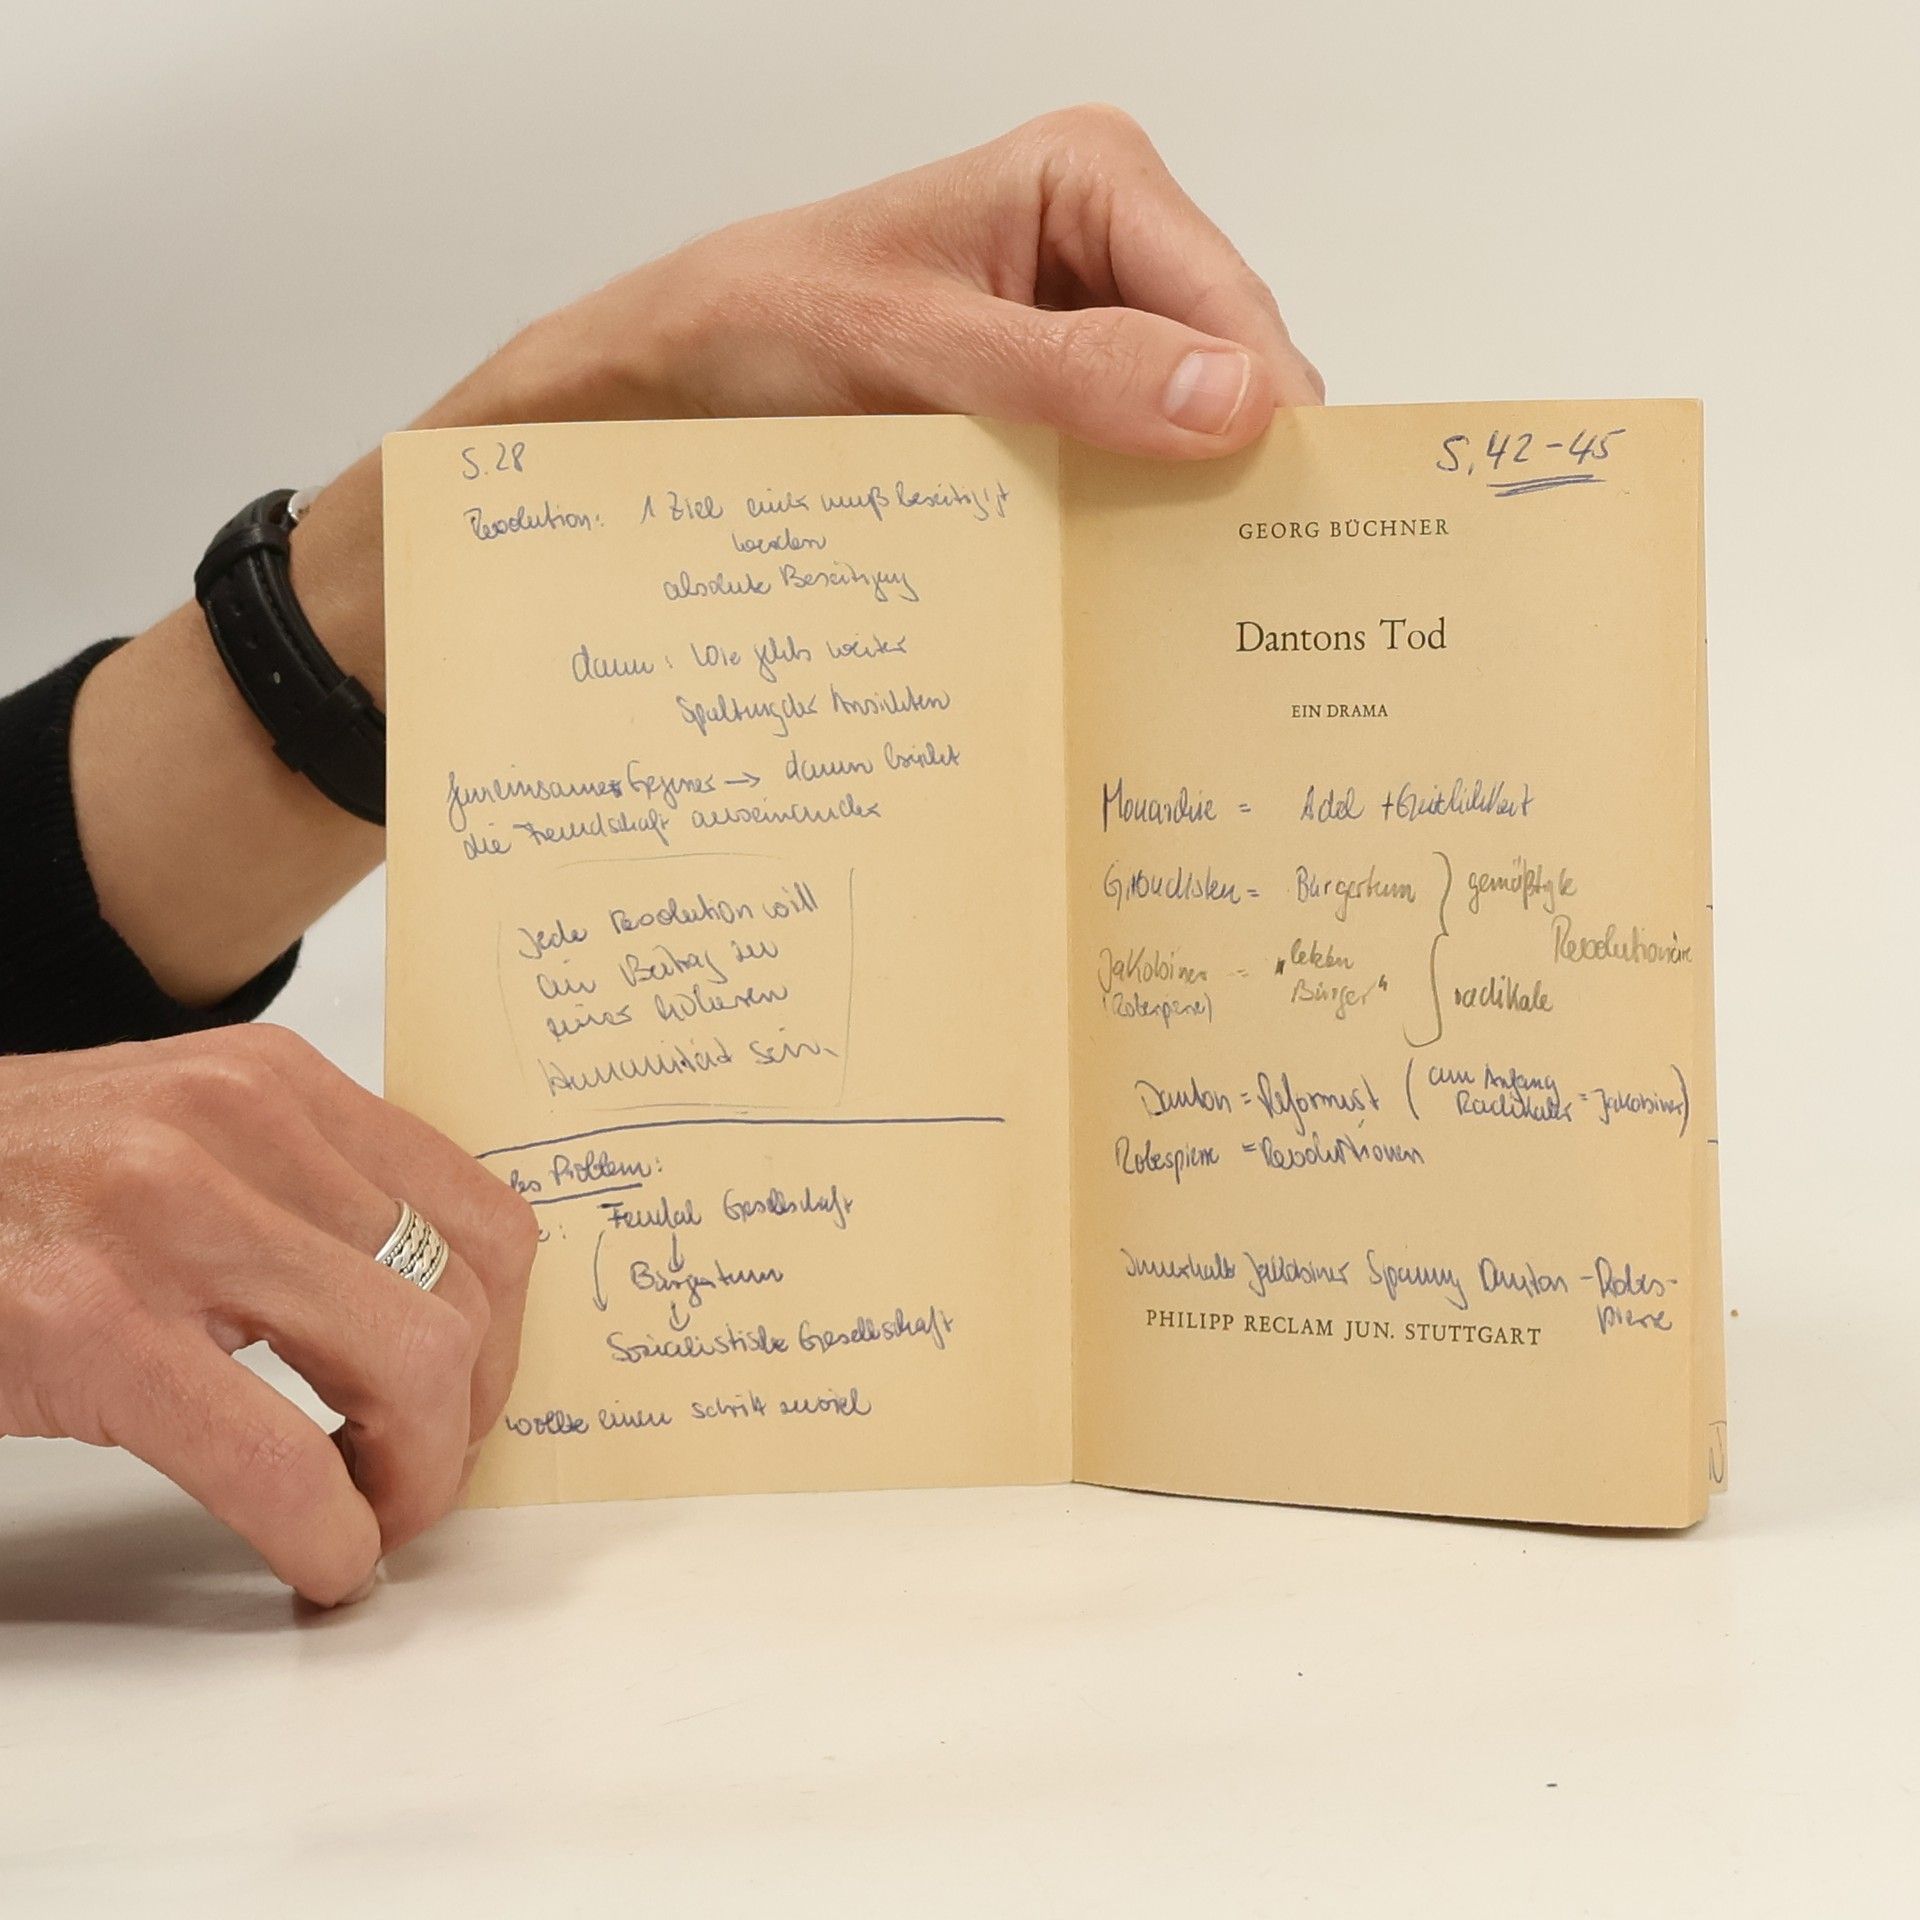 S. 28
Revolution: 1 Ziel einer muß beseitigt
werden
absolute Beseitigung
dann: Wie gehts weiter
Spaltung der Ansichten
gemeinsamer Gegner → dann bricht
die Freundschaft auseinander
Jede Revolution will
ein Beitrag zu
einer höheren
Humanität sein.
Problem:
Feudal Gesellschaft
↓
Bürgertum
↓
Sozialistische Gesellschaft
wollte einen schritt zuviel
S. 42-45
GEORG BÜCHNER
Dantons Tod
EIN DRAMA
Monarchie = Adel + Geistlichkeit
Girondisten = Bürgertum } gemäßigte
Revolutionäre
Jakobiner = "letzten
(Robespierre) Bürger" } radikale
Danton = Reformist (am Anfang
Radikaler = Jakobiner)
Robespierre = Revolutionär
Innerhalb Jakobiner Spannung Danton - Robes-
pierre
PHILIPP RECLAM JUN. STUTTGART